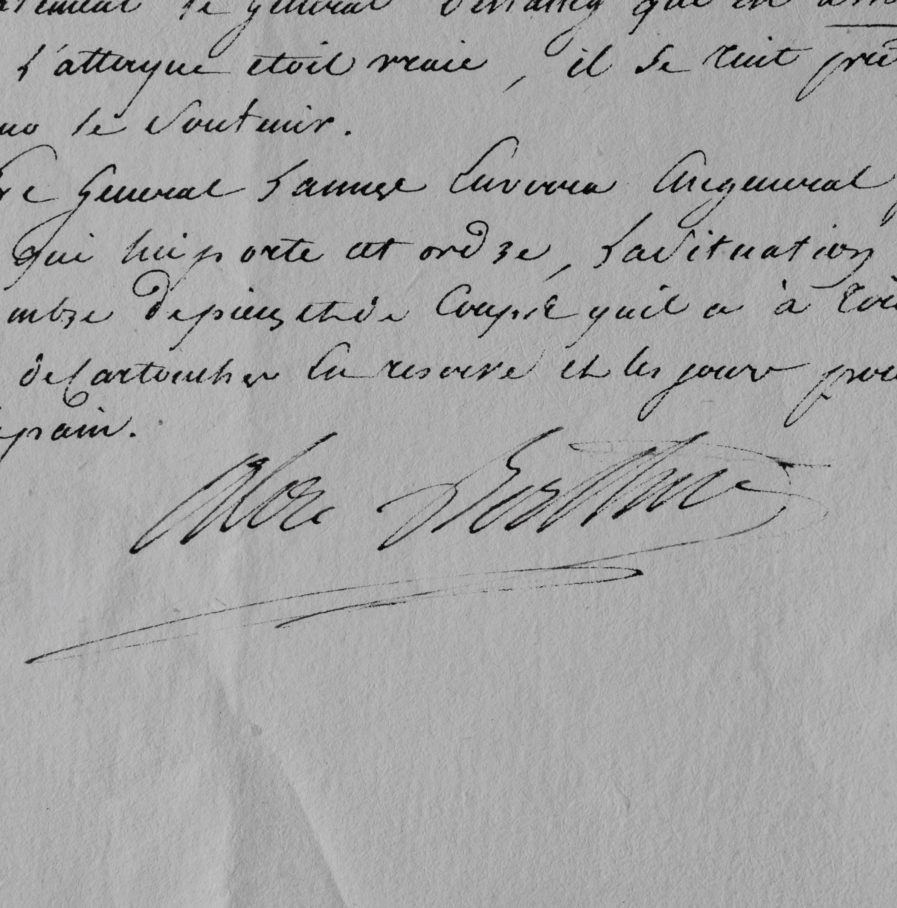 le general que en
L'attaque etoit vraie, il se tint pret
le Soutenir.
Le General Lannes Envoira Augeneral
qui lui porte cet ordre, La Situation
ombre de pieces et de Coups quil a à tirer
de Cartouches En reserve et les jours pour
pain.
Alex Berthier